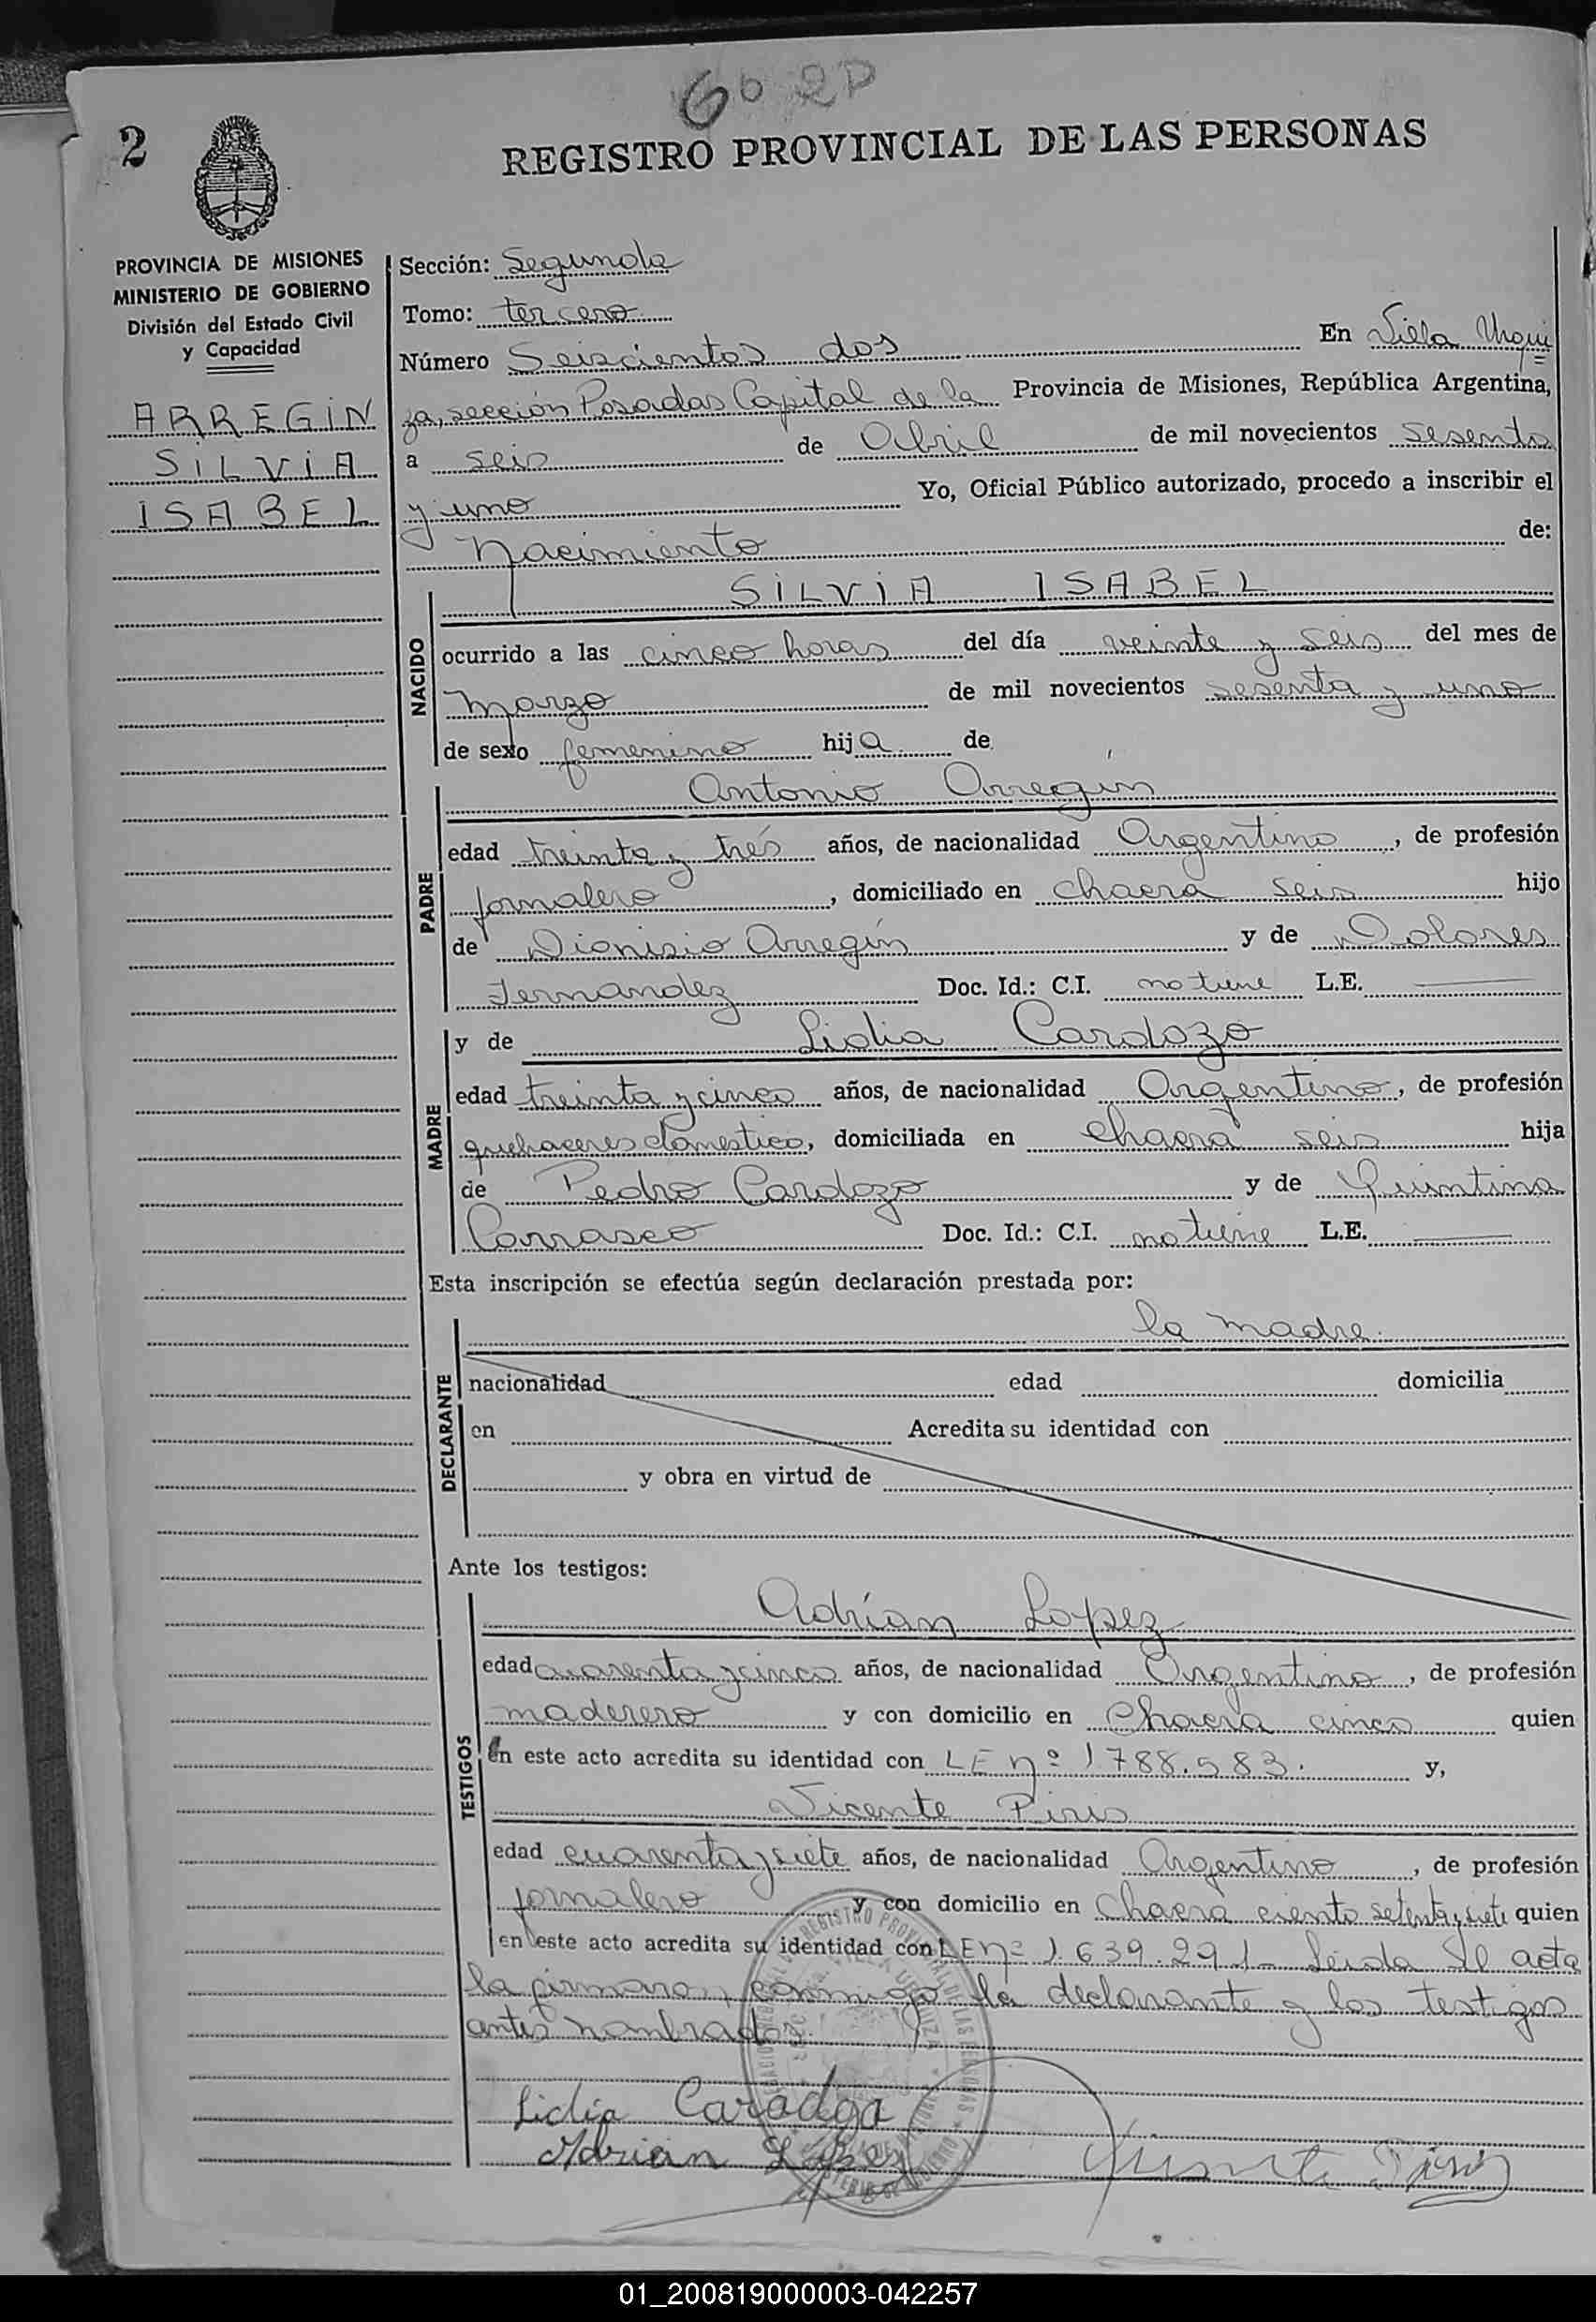 602D
2
REGISTRO PROVINCIAL DE LAS PERSONAS
PROVINCIA DE MISIONES
MINISTERIO DE GOBIERNO
División del Estado Civil
y Capacidad
ARREGIN
SILVIA
ISABEL
Sección: Segunda
Tomo: tercero
Número Seiscientos dos En Villa Urqui
za, sección Posadas Capital de la Provincia de Misiones, República Argentina,
a seis de Abril de mil novecientos sesenta
y uno Yo, Oficial Público autorizado, procedo a inscribir el
Nacimiento de:
NACIDO
SILVIA ISABEL
ocurrido a las cinco horas del día veinte y seis del mes de
marzo de mil novecientos sesenta y uno
de sexo femenino hija de
PADRE
Antonio Arregín
edad treinta y trés años, de nacionalidad Argentino, de profesión
jornalero, domiciliado en chacra seis hijo
de Dionisio Arregín y de Dolores
Fernandez Doc. Id.: C.I. no tiene L.E.
MADRE
y de Lidia Cardozo
edad treinta y cinco años, de nacionalidad Argentina, de profesión
quehaceres domestico, domiciliada en Chacra seis hija
de Pedro Cardozo y de Quintina
Carrasco Doc. Id.: C.I. no tiene L.E.
Esta inscripción se efectúa según declaración prestada por:
DECLARANTE
la madre.
nacionalidad edad domicilia
en Acredita su identidad con
y obra en virtud de
Ante los testigos:
TESTIGOS
Adrían Lopez
edad cuarenta y cinco años, de nacionalidad Argentino, de profesión
maderero y con domicilio en Chacra cinco quien
en este acto acredita su identidad con LE nº 1788.583. y,
Vicente Piris
edad cuarenta y siete años, de nacionalidad Argentino, de profesión
jornalero y con domicilio en Chacra ciento setenta y siete quien
en este acto acredita su identidad con LE nº 1.639.291 Leida el acta
la firmaron conmigo la declarante y los testigos
antes nombrados.
Lidia Caradoza
Adrian Lopez
Vicente Piris
01_200819000003-042257